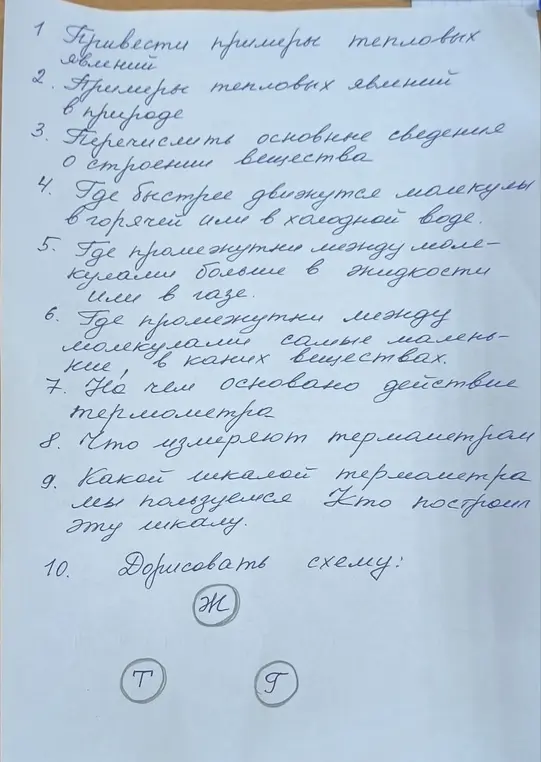 1 Привести примеры тепловых
явлений
2. Примеры тепловых явлений
в природе
3. Перечислить основные сведения
о строении вещества
4. Где быстрее движутся молекулы
в горячей или в холодной воде.
5. Где промежутки между моле-
кулами больше в жидкости
или в газе.
6. Где промежутки между
молекулами самые малень-
кие, в каких веществах.
7. На чем основано действие
термометра
8. Что измеряют термометром
9. Какой шкалой термометра
мы пользуемся Кто построил
эту шкалу.
10. Дорисовать схему:
Ж
Т Г